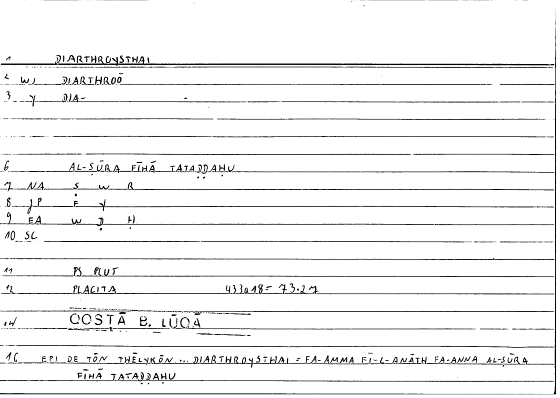 1 DIARTHROYSTHAI
2 W, DIARTHROŌ
3 Y DIA- -
6 AL-ṢŪRA FĪHĀ TATAḌḌAḤU
7 NA Ṣ W R
8 JP F Y
9 EA W Ḍ Ḥ
10 SC
11 PS PLUT
12 PLACITA 433a18 = 73.21
14 QOSṬĀ B. LŪQĀ
16 EPI DE TŌN THĒLYKŌN ... DIARTHROYSTHAI = FA-AMMA FĪ-L-ANĀTH FA-ANNA AL-ṢŪRA
FĪHĀ TATAḌḌAḤU